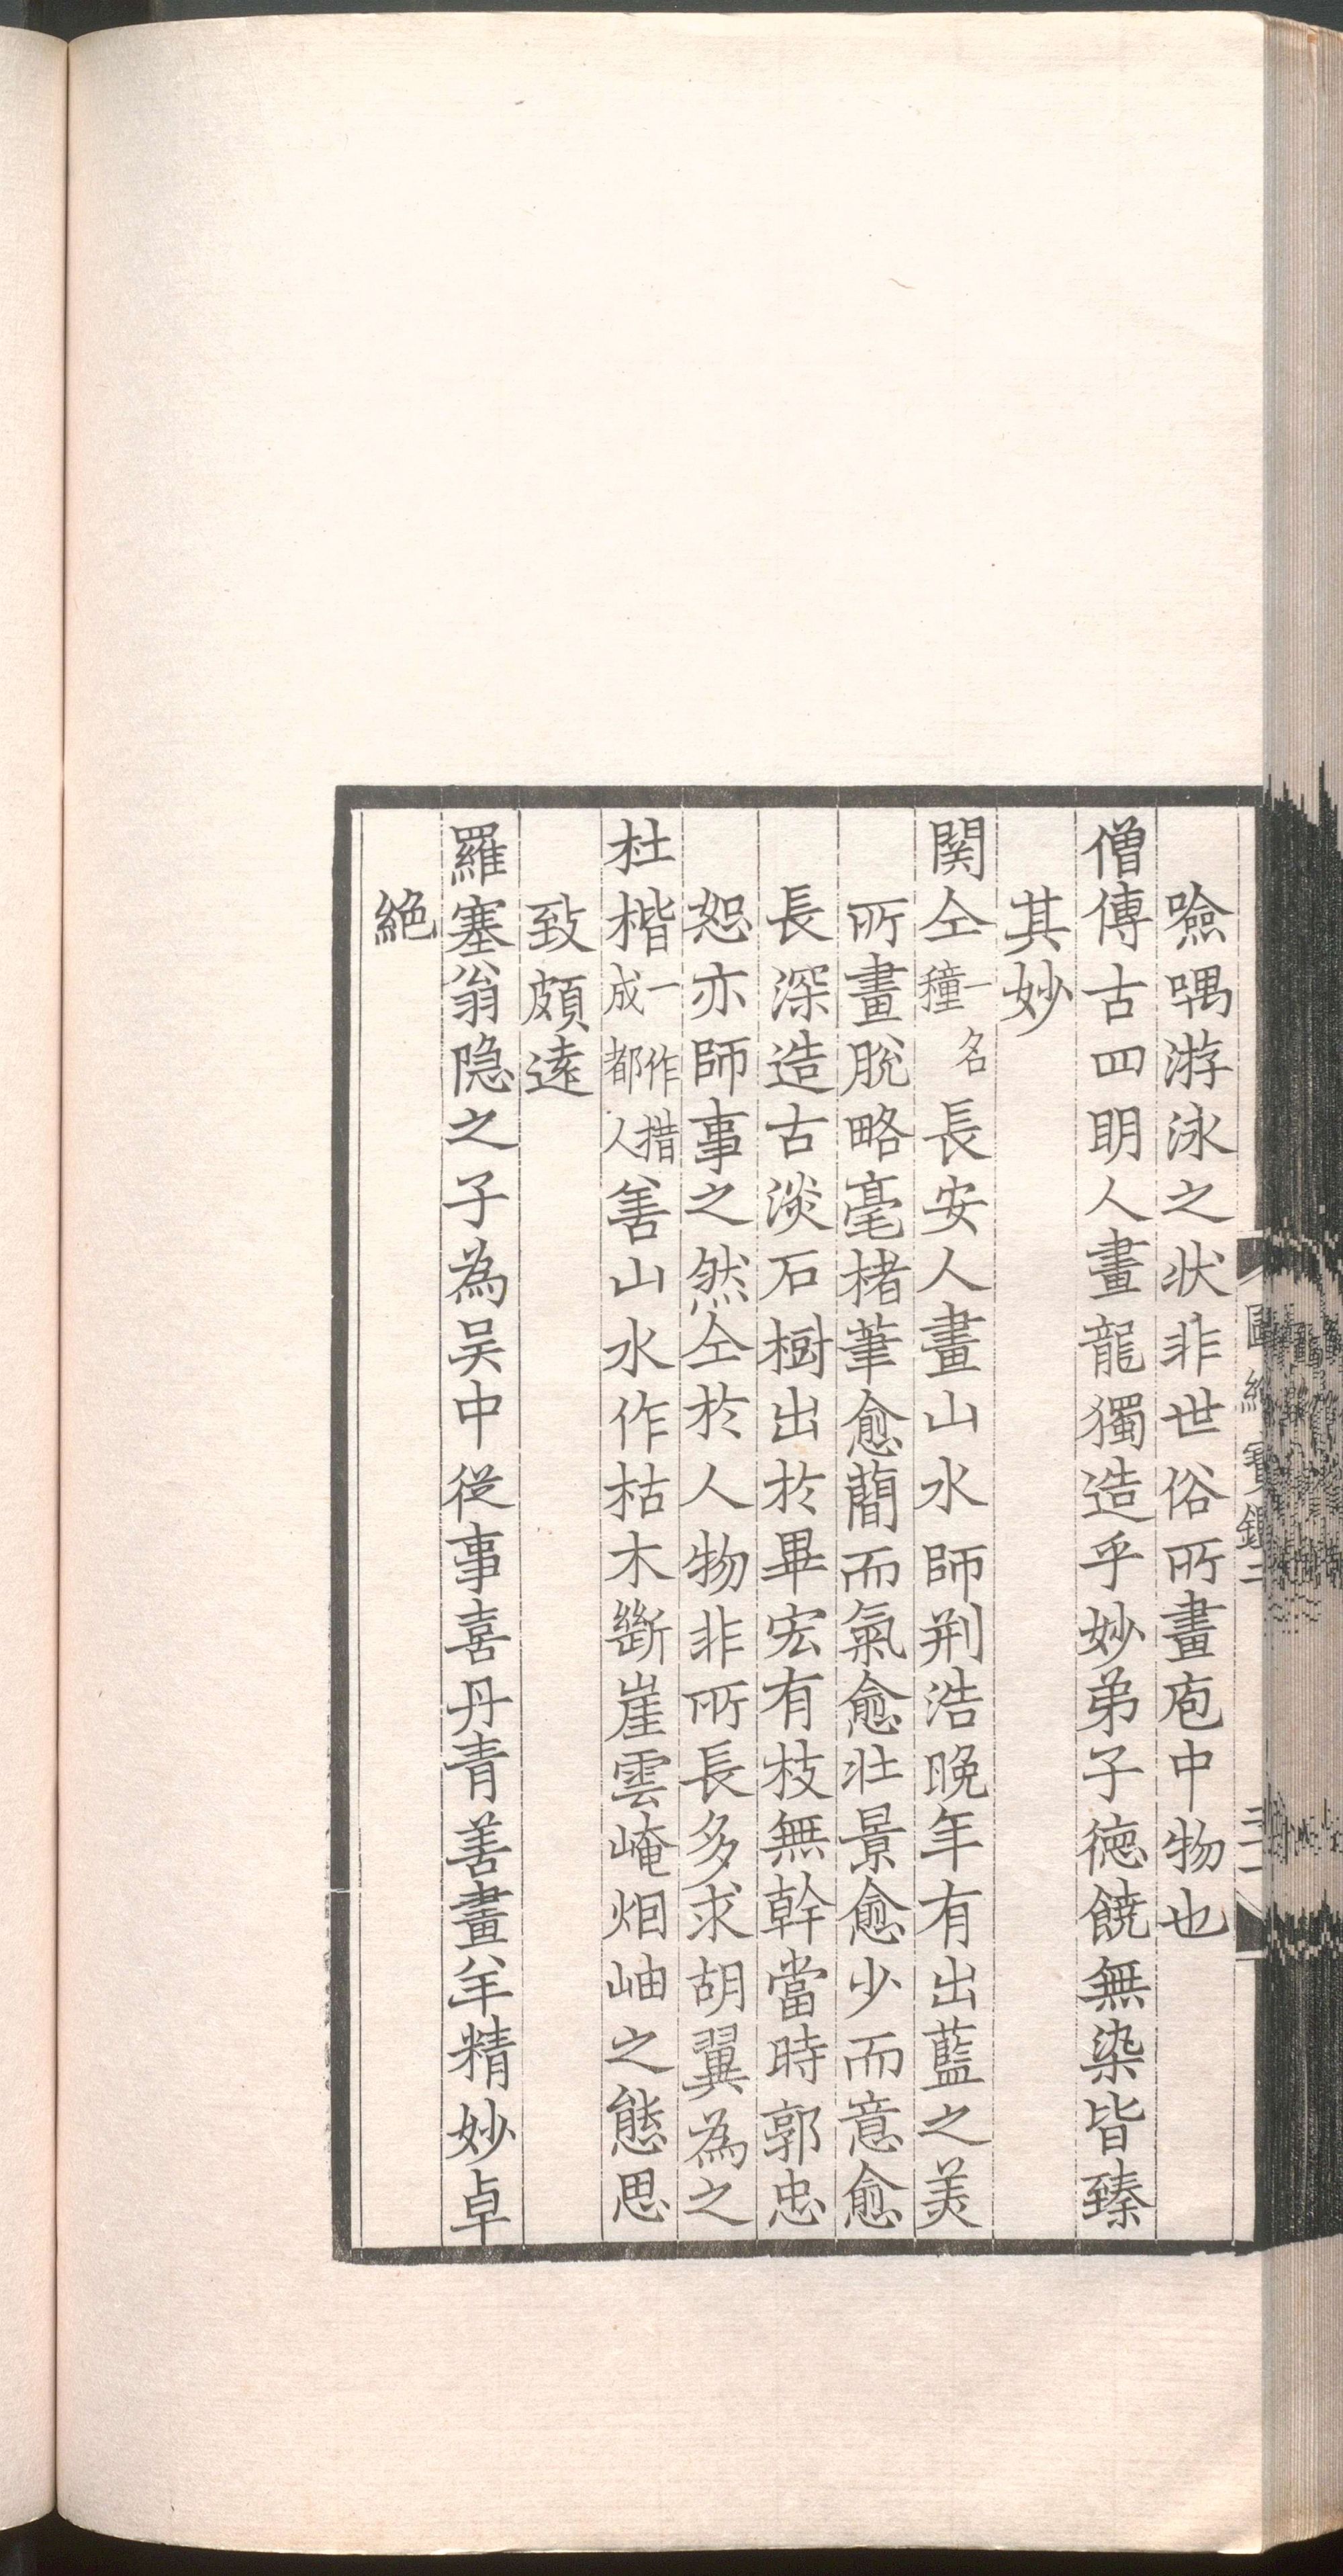 圖繪寶鑑二 三十一
噞喁游泳之狀非世俗所畫庖中物也
僧傳古四明人畫龍獨造乎妙弟子德饒無染皆臻
其妙
関仝一名穜長安人畫山水師荆浩晚年有出藍之美
所畫脫略毫楮筆愈蕳而氣愈壯景愈少而意愈
長深造古淡石樹出於畢宏有枝無幹當時郭忠
恕亦師事之然仝於人物非所長多求胡翼為之
杜楷一作措成都人善山水作枯木斷崖雲崦烟岫之態思
致頗遠
羅塞翁隐之子為吴中從事喜丹青善畫羊精妙卓
絕